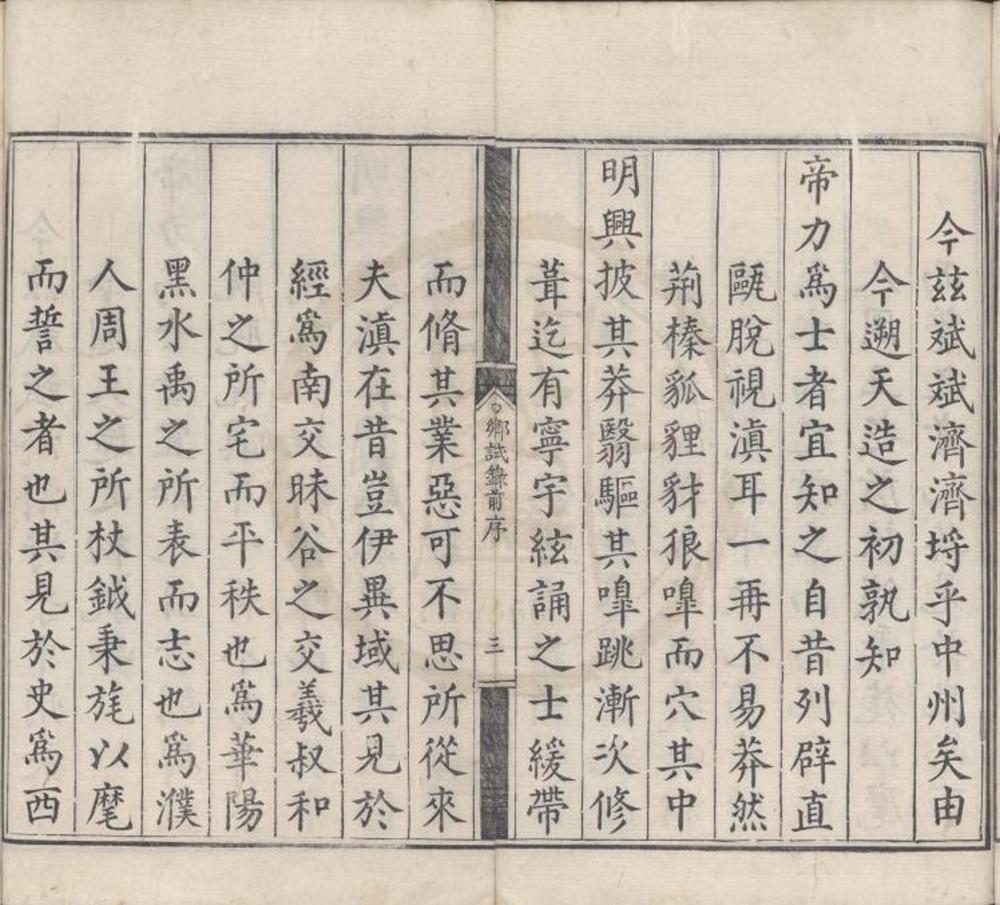 今茲斌斌濟濟埒乎中州矣由
今遡天造之初孰知
帝力爲士者宜知之自昔列辟直
甌脫視滇耳一再不易莽然
荊榛狐貍豺狼嘷而穴其中
明興披其莽翳驅其嘷跳漸次修
葺迄有寧宇絃誦之士緩帶
鄉試錄前序
三
而脩其業惡可不思所從來
夫滇在昔豈伊異域其見於
經爲南交昧谷之交羲叔和
仲之所宅而平秩也爲華陽
黑水禹之所表而志也爲濮
人周王之所杖鉞秉旄以麾
而誓之者也其見於史爲西